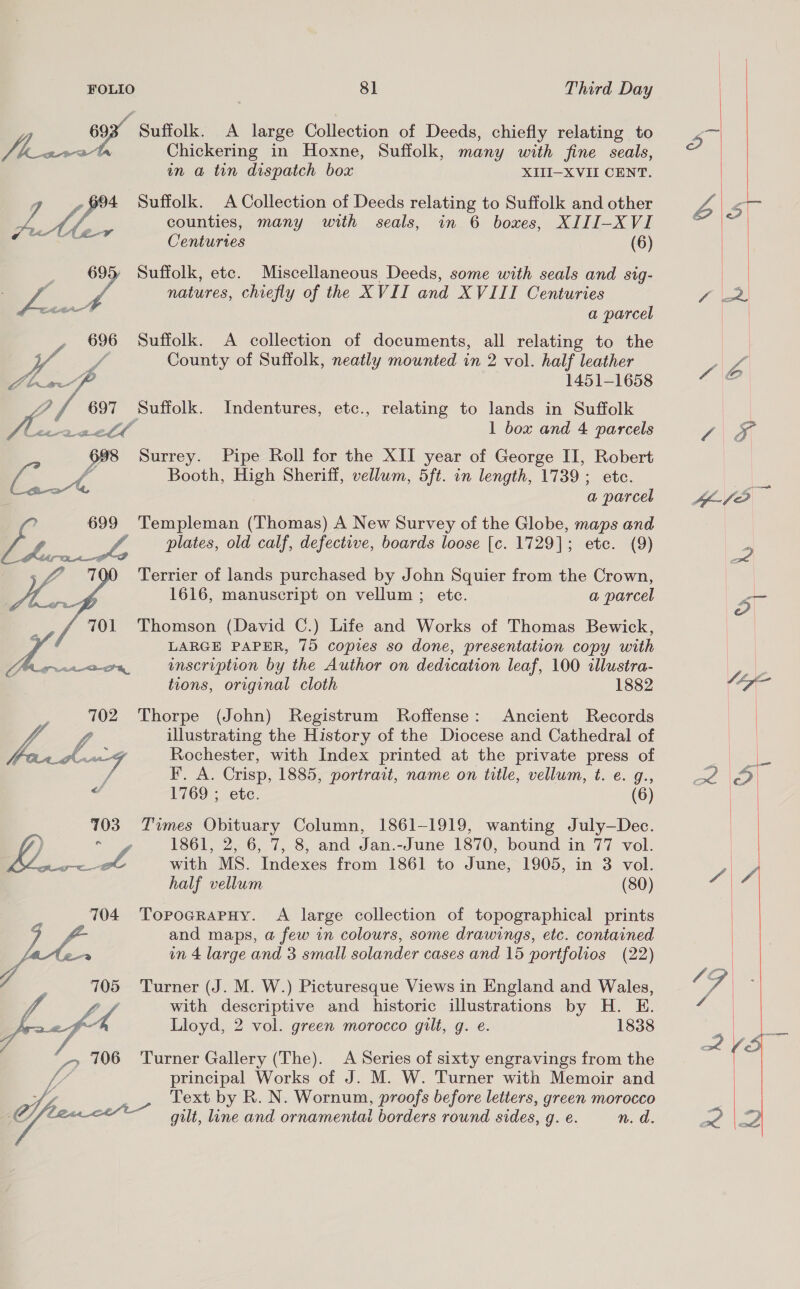 FOLIO 81 Third Day
693 Suffolk. A large Collection of Deeds, chiefly relating to
Chickering in Hoxne, Suffolk, many with fine seals,
in a tin dispatch box XIII–XVII CENT.
694 Suffolk. A Collection of Deeds relating to Suffolk and other
counties, many with seals, in 6 boxes, XIII–XVI
Centuries (6)
695 Suffolk, etc. Miscellaneous Deeds, some with seals and sig-
natures, chiefly of the XVII and XVIII Centuries
a parcel
696 Suffolk. A collection of documents, all relating to the
County of Suffolk, neatly mounted in 2 vol. half leather
1451–1658
697 Suffolk. Indentures, etc., relating to lands in Suffolk
1 box and 4 parcels
698 Surrey. Pipe Roll for the XII year of George II, Robert
Booth, High Sheriff, vellum, 5ft. in length, 1739; etc.
a parcel
699 Templeman (Thomas) A New Survey of the Globe, maps and
plates, old calf, defective, boards loose [c. 1729]; etc. (9)
700 Terrier of lands purchased by John Squier from the Crown,
1616, manuscript on vellum; etc. a parcel
701 Thomson (David C.) Life and Works of Thomas Bewick,
LARGE PAPER, 75 copies so done, presentation copy with
inscription by the Author on dedication leaf, 100 illustra-
tions, original cloth 1882
702 Thorpe (John) Registrum Roffense: Ancient Records
illustrating the History of the Diocese and Cathedral of
Rochester, with Index printed at the private press of
F. A. Crisp, 1885, portrait, name on title, vellum, t. e. g.,
1769; etc. (6)
703 Times Obituary Column, 1861–1919, wanting July–Dec.
1861, 2, 6, 7, 8, and Jan.-June 1870, bound in 77 vol.
with MS. Indexes from 1861 to June, 1905, in 3 vol.
half vellum (80)
704 TOPOGRAPHY. A large collection of topographical prints
and maps, a few in colours, some drawings, etc. contained
in 4 large and 3 small solander cases and 15 portfolios (22)
705 Turner (J. M. W.) Picturesque Views in England and Wales,
with descriptive and historic illustrations by H. E.
Lloyd, 2 vol. green morocco gilt, g. e. 1838
706 Turner Gallery (The). A Series of sixty engravings from the
principal Works of J. M. W. Turner with Memoir and
Text by R. N. Wornum, proofs before letters, green morocco
gilt, line and ornamental borders round sides, g. e. n. d.